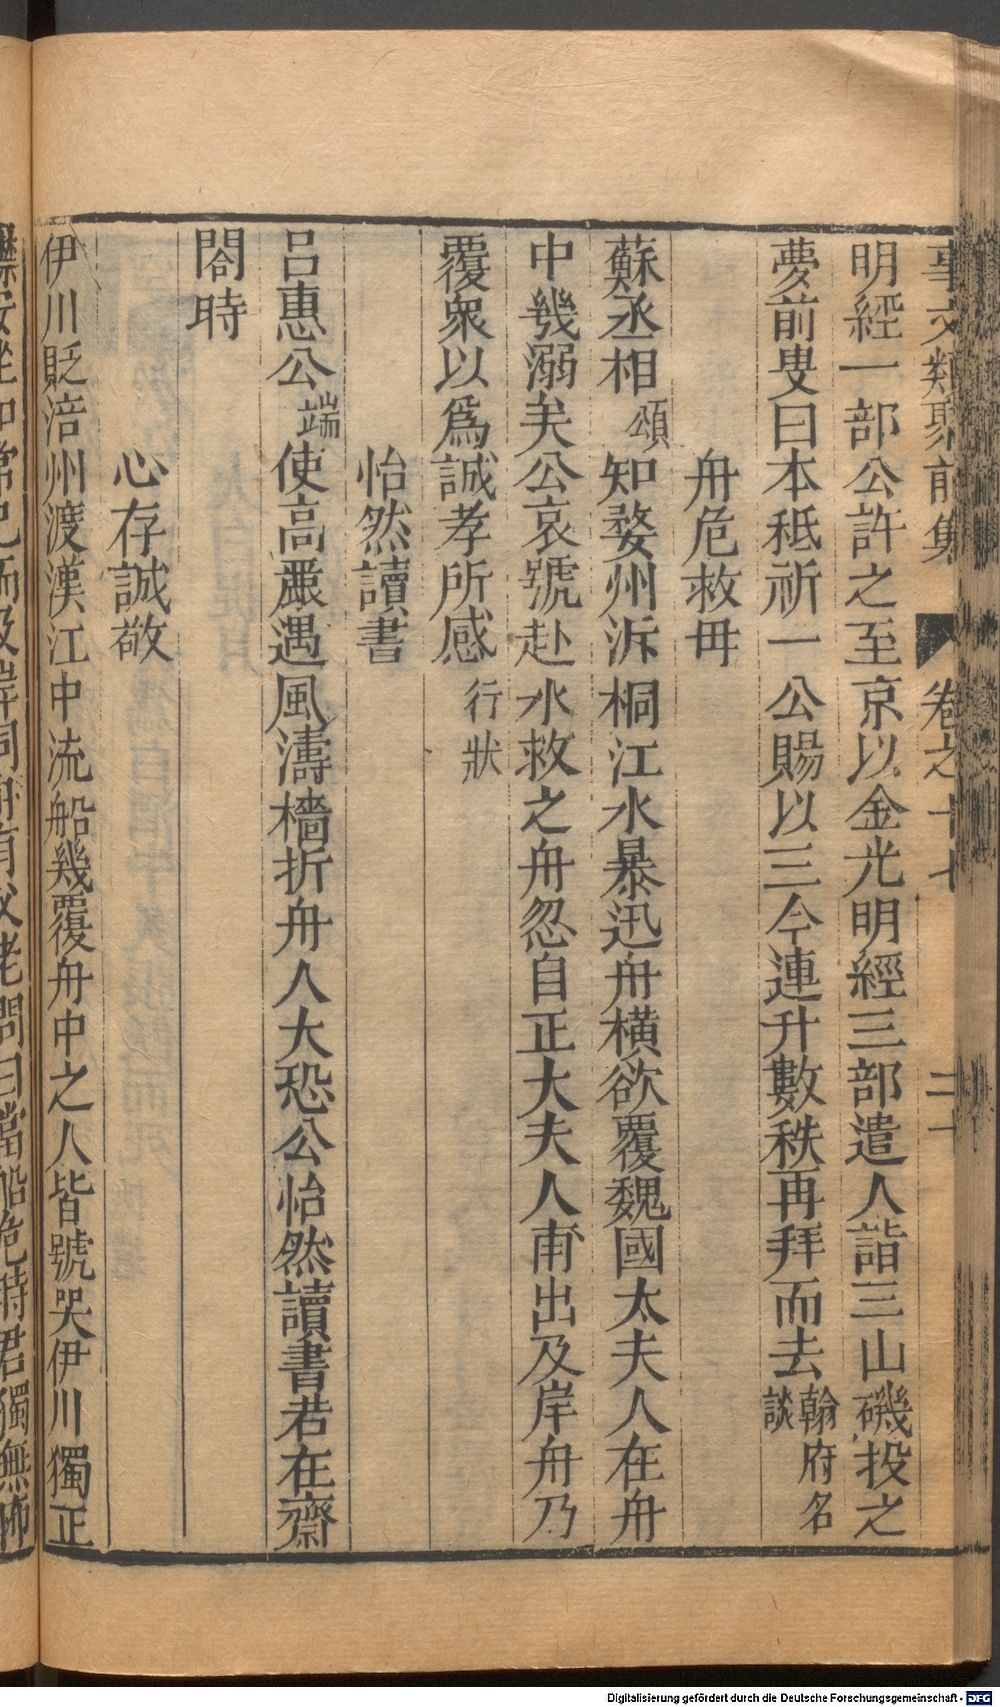 事文類聚前集 卷之十七 二十
明經一部公許之至京以金光明經三部遣人詣三山磯投之
夢前叟曰本秪祈一公賜以三今連升數秩再拜而去翰府名談
舟危救母
蘇丞相頌知婺州泝桐江水暴迅舟橫欲覆魏國太夫人在舟
中幾溺矣公哀號赴水救之舟忽自正大夫人甫出及岸舟乃
覆衆以爲誠孝所感行狀
怡然讀書
呂惠公端使高麗遇風濤檣折舟人大恐公怡然讀書若在齋
閤時
心存誠敬
伊川貶涪州渡漢江中流船幾覆舟中之人皆號哭伊川獨正
襟安坐如常已而及岸同舟有父老問曰當船危時君獨無怖
Digitalisierung gefördert durch die Deutsche Forschungsgemeinschaft - DFG